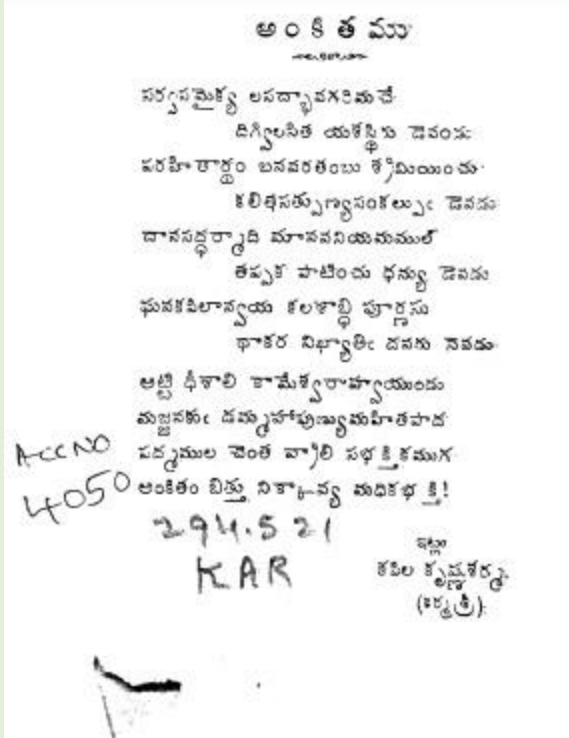 అంకితము
సర్వసమైక్య లసద్భావగరిమచే
దిగ్విలసిత యశస్థికు డెవండు
పరహితార్థం బనవరతంబు శ్రమియించు
కలితసత్పుణ్యసంకల్పుఁ డెవడు
దానసద్ధర్మాది మానవనియమముల్
తప్పక పాటించు ధన్యు డెవడు
ఘనకపిలాన్వయ కలశాబ్ధి పూర్ణసు
థాకర నిఖ్యాతిఁ దనరు నెవడు
అట్టి ధీశాలి కామేశ్వరాహ్వయుండు
మజ్జనకుఁ డమ్మహాపుణ్యుమహితపాద
పద్మముల చెంత వ్రాలి సభక్తికముగ
అంకితం బిత్తు నీకావ్య మధికభక్తి!
ACC NO
4050
294.521
KAR
ఇట్లు
కపిల కృష్ణశర్మ
(కర్మశ్రీ)